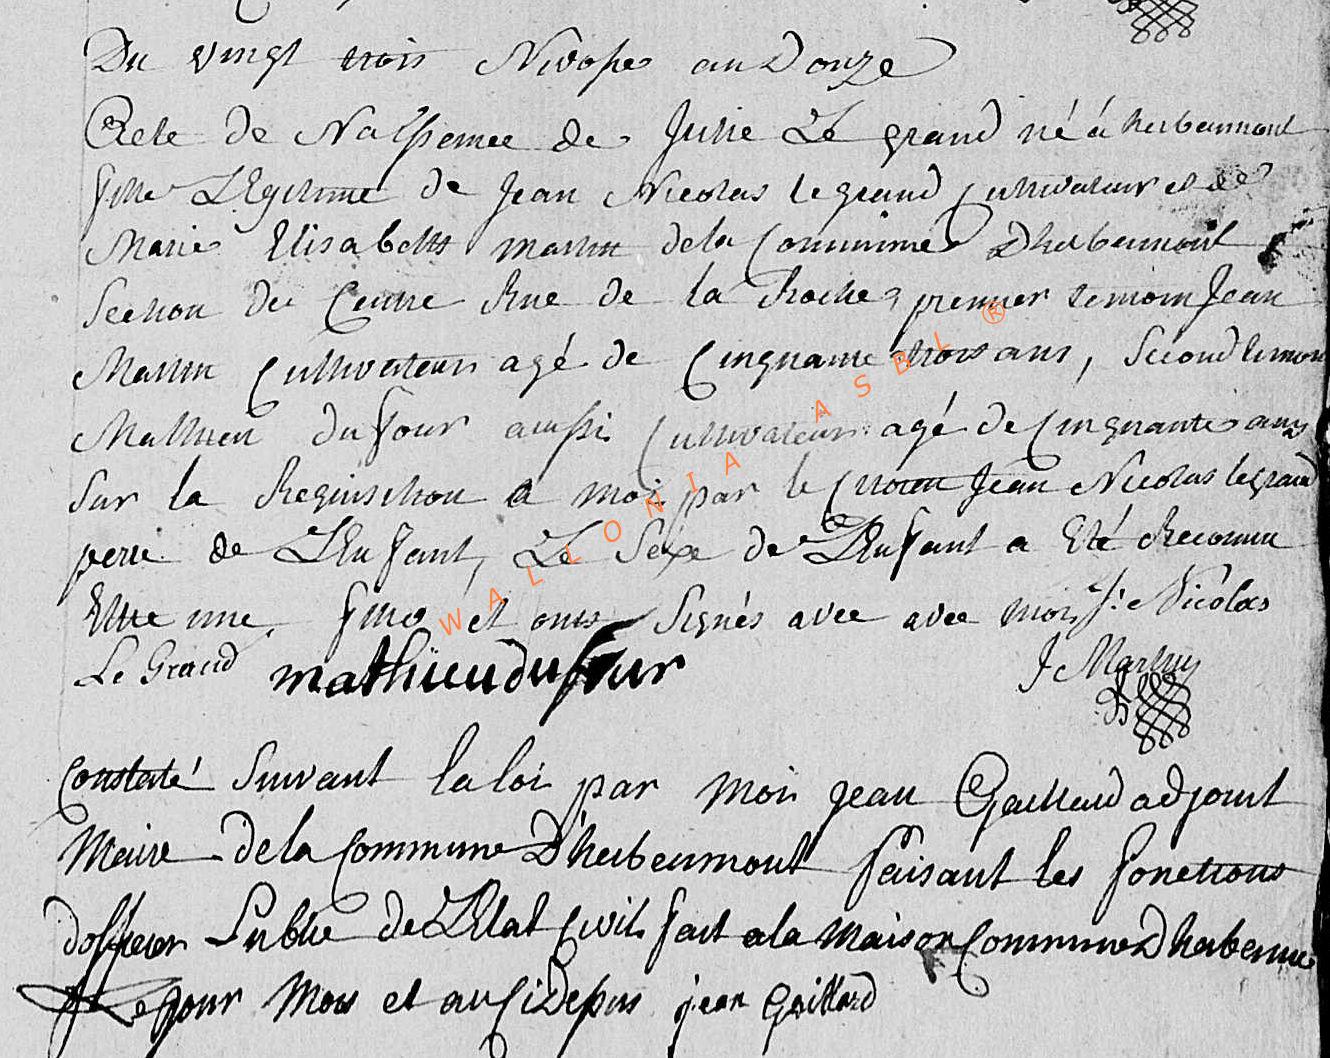 Du vingt trois Nivose an Douze
Acte de Naissence de Julie Le grand né á herbeumont
fille Légitime de Jean Nicolas legrand Cultivateur et de
Marie Elisabette martin de la Commune Dherbeumont
Section du Centre Rue de la Roche, premier temoin Jean
Martin Cultivateur agé de Cinquante trois ans, Second temoin
Mathieu dufour aussi Cultivateur agé de Cinquante ans
Sur la Requisition a moi par le Citoien Jean Nicolas legrand
pere de L'Enfant, Le Sexe de L'Enfant a Eté Reconnu
Etre une fille et ons Signés avec avec moi J: Nicolas
Le Grand mathieu dufour J Martin
Constaté Suivant la loi par Moi Jean Gaillard adjoint
Maire de la Commune D'herbeumont faisant les fonctions
dofficier Public de L'Etat Civil fait a la Maison Commune Dherbeumo
le jour Mois et an Ci Depus jean Gaillard
WALLONIA ASBL ®